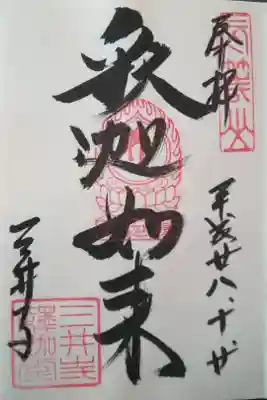 奉拝
平成廿八、十、廿
釈迦如来
三井寺
三井寺
釋迦堂